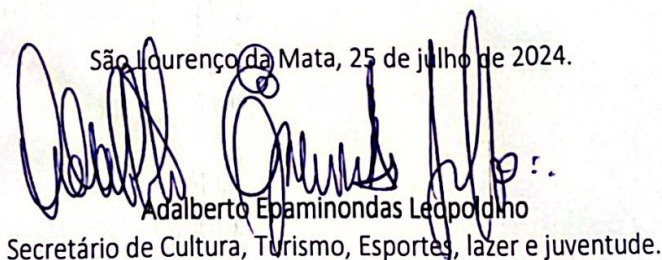 São Lourenço da Mata, 25 de julho de 2024.
Adalberto Epaminondas Leopoldino
Secretário de Cultura, Turismo, Esportes, lazer e juventude.